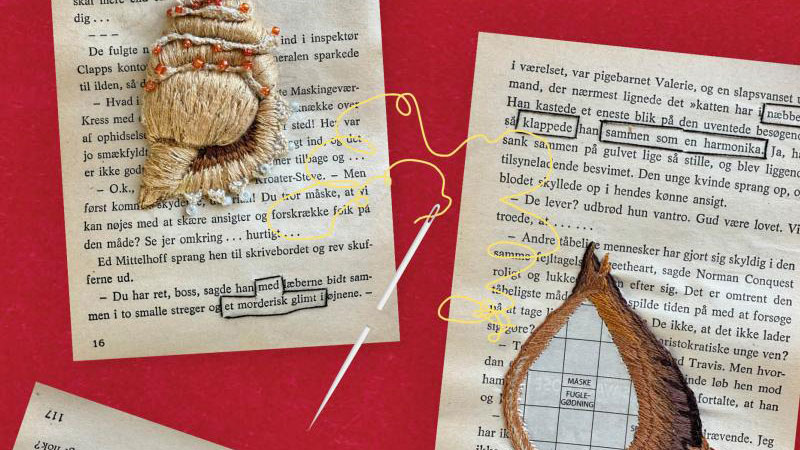 dig . . .
– – –
De fulgte
ind i inspektør
Clapps
neralen sparkede
til ilden, så
– Hvad i
Maskingevær-
Kress med
knække over
af ophidselse
sted! Her var
jo smækfyldt
ind, og det
er ikke
tilbage og . . .
– O.k.,
Kroater-Steve. – Men
først
skyde,
Du tror måske, at vi
kan nøjes med at skære ansigter og forskrække folk på
den måde? Se jer omkring . . . hurtigt . . .
Ed Mittelhoff sprang hen til skrivebordet og rev skuf-
ferne ud.
– Du har ret, boss, sagde han med læberne bidt sam-
men i to smalle streger og et morderisk glimt i øjnene. –
16
117
nok?
i værelset, var pigebarnet Valerie, og en slapsvanset
mand, der nærmest lignede det »katten har i næbbet
Han kastede et eneste blik på den uventede besøgende
så klappede han sammen som en harmonika. Ja, ha
sank sammen på gulvet lige så stille, og blev liggende
tilsyneladende besvimet. Den unge kvinde sprang op, o
blodet skyllede op i hendes kønne ansigt.
– De lever? udbrød hun vantro. Gud være lovet. Vi
troede, at . . . . . .
– Andre tåbelige mennesker har gjort sig skyldig i den
samme fejltagelse,
sweetheart, sagde Norman Conquest
roligt og lukkede
efter sig. Det er omtrent den
tåbeligste måde
spilde tiden på med at forsøge
på at tage
De ikke, at det ikke lader
sig gøre?
aristokratiske unge ven?
– T
ed Travis. Men hvor-
dan
inde løb hen mod
ham
fortalte, at han
og
MASKE
FUGLE-
GØDNING
har ik
drævende. Jeg